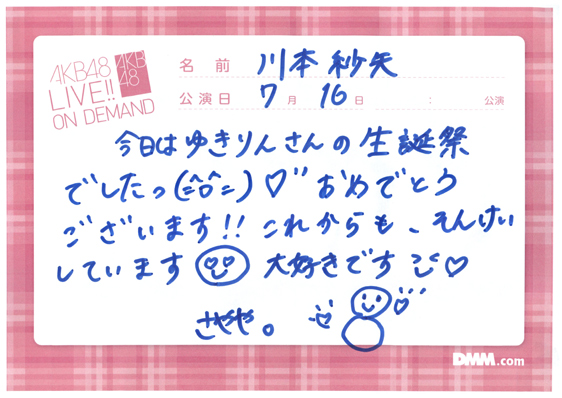 AKB48
LIVE!!
ON DEMAND
AKB
48
名前 川本紗矢
公演日 7月 16日 : 公演
今日はゆきりんさんの生誕祭
でしたっ(=ô=)♡" おめでとう
ございます!! これからも、そんけい
しています 大好きです ♡
さやや。
DMM.com